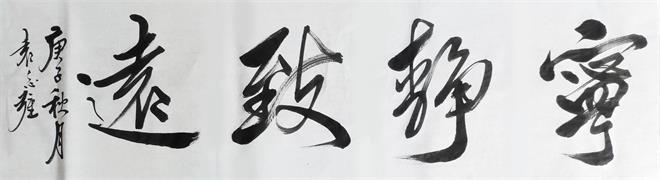 寧靜致遠
庚子秋月